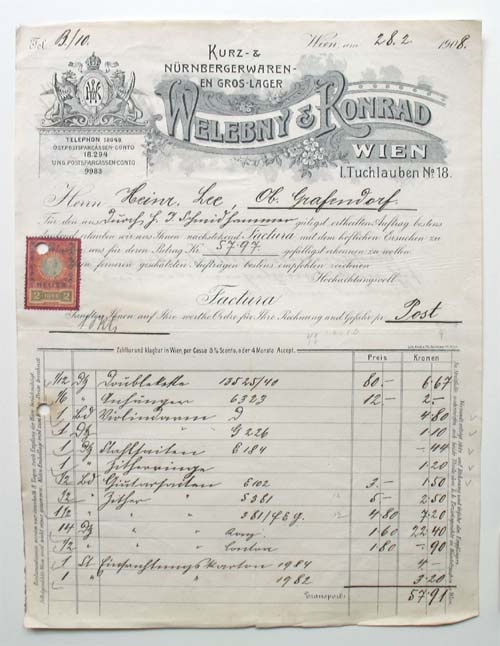 Fol. B/10. Wien, am 28.2 1908.
KURZ- &
NÜRNBERGERWAREN-
EN GROS-LAGER
WELEBNY & KONRAD
WIEN
I. Tuchlauben No 18.
TELEPHON 18049
ÖST. POSTSPARCASSEN-CONTO
18.294
UNG. POSTSPARCASSEN-CONTO
9983
Herrn Heinr. Lee, Ob. Grafendorf.
Für den uns durch H. J. gütigst ertheilten Auftrag bestens
dankend, erlauben wir uns Ihnen nachstehend Factura mit dem höflichen Ersuchen zu
uns für deren Betrag Kr. 57.97 gefälligst erkennen zu wollen.
ferneren geschätzten Aufträgen bestens empfohlen zeichnen
Hochachtungsvoll
2
Factura
Sandten Ihnen auf Ihre werthe Ordre für Ihre Rechnung und Gefahr pr. Post
Zahlbar und klagbar in Wien, per Cassa % Sconto, oder 4 Monate Accept.
Preis Kronen
1/12 Dz Doublekette 13525/40 80.- 6.67
1/6 " Anhänger 6323 12.- 2.-
1 Bd Violindarm D 4.80
1 Dz " G 226 1.10
1 Dz Stahlsaiten E 184 -.44
1 " Zitherringe 1.20
1/2 Bd Guitarsaiten E 102 3.- 1.50
1/2 " Zither S 381 5.- 2.50
1 1/2 " " " 381/ 4.80 7.20
14 Dz " " 1.60 22.40
1/2 " " " London 1.80 -.90
1 St karton 1984 4.-
1 " " 1982 3.20
Transport: 57.91